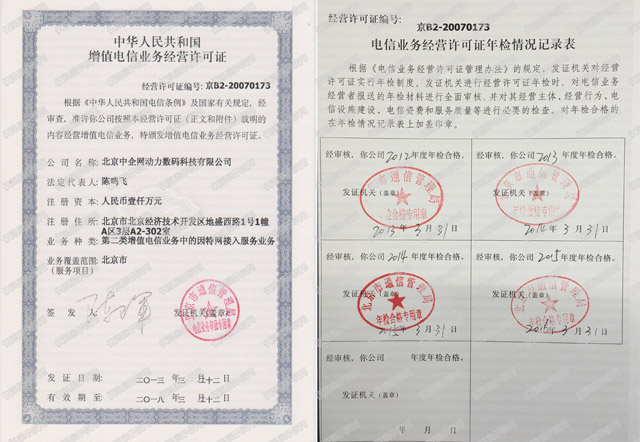 中华人民共和国
增值电信业务经营许可证
经营许可证编号: 京B2-20070173
根据《中华人民共和国电信条例》及国家有关规定，经
审查，准许你公司按照本经营许可证（正文和附件）载明的
内容经营增值电信业务，特颁发增值电信业务经营许可证。
公司名称: 北京中企网动力数码科技有限公司
法定代表人: 陈鸣飞
注册资本: 人民币壹仟万元
注册住所: 北京市北京经济技术开发区地盛西路1号1幢
A区3层A2-302室
业务种类: 第二类增值电信业务中的因特网接入服务业务
业务覆盖范围: 北京市
(服务项目)
签发人
发证机关(盖章)
北京市通信管理局
电信业务审批专用章
发证日期: 二〇一三年三月十二日
有效期至: 二〇一八年三月十二日
经营许可证编号: 京B2-20070173
电信业务经营许可证年检情况记录表
根据《电信业务经营许可证管理办法》的规定，发证机关对经营
许可证实行年检制度。发证机关进行经营许可证年检时，对电信业务
经营者报送的年检材料进行全面审核，并对其经营主体、经营行为、电
信设施建设、电信资费和服务质量等进行必要的检查。对年检合格的
在年检情况记录表上加盖印章。
经审核，你公司2012年度年检合格。
发证机关（盖章）
北京市通信管理局
年检合格专用章
2013年3月31日
经审核，你公司2013年度年检合格。
发证机关（盖章）
北京市通信管理局
年检合格专用章
2014年3月31日
经审核，你公司2014年度年检合格。
发证机关（盖章）
北京市通信管理局
年检合格专用章
2015年3月31日
经审核，你公司2015年度年检合格。
发证机关（盖章）
北京市通信管理局
年检合格专用章
年3月31日
经审核，你公司 年度年检合格。
发证机关（盖章）
年 月 日
经审核，你公司 年度年检合格。
发证机关（盖章）
年 月 日